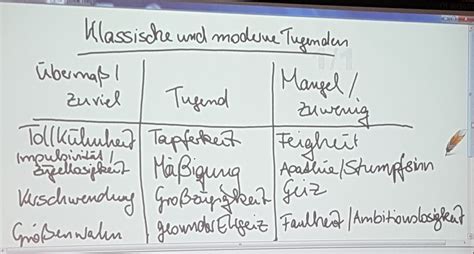 Klassische und moderne Tugenden
Übermaß/ zuviel Tugend Mangel/ zuwenig
Tollkühnheit Tapferkeit Feigheit
Impulsivität/ Zügellosigkeit Mäßigung Apathie/Stumpfsinn
Verschwendung Großzügigkeit Geiz
Größenwahn gesunder Ehrgeiz Faulheit/Ambitionslosigkeit